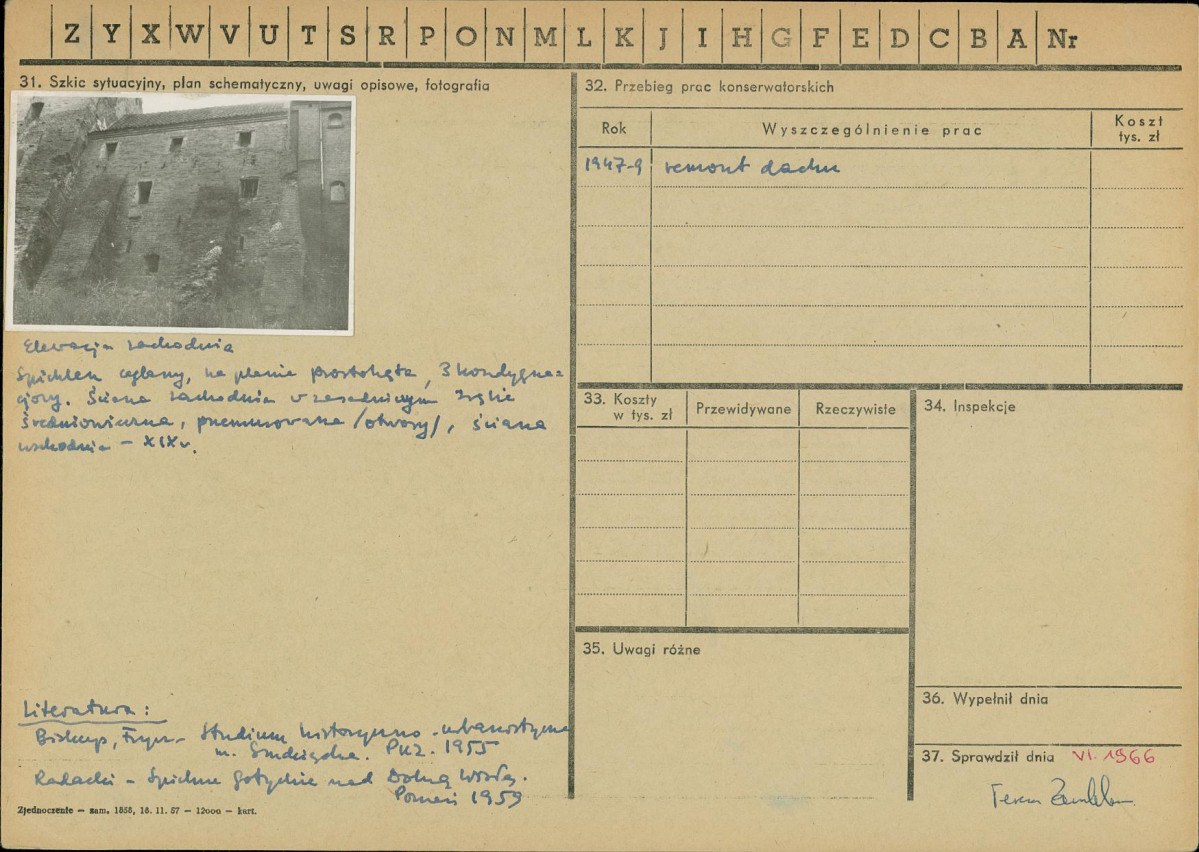 Z Y X W V U T S R P O N M L K J I H G F E D C B A Nr
31. Szkic sytuacyjny, plan schematyczny, uwagi opisowe, fotografia
Elewacja zachodnia
Spichlerz ceglany, na planie prostokąta, 3 kondygna=
cjowy. Ściana zachodnia w zasadniczym zrębie
średniowieczna, przemurowana /otwory/, ściana
wschodnia – XIX w.
Literatura:
Biskup, – Studium historyczno-urbanistyczne
m. Grudziądza. PKZ. 1955
Radacki – Spichrze gotyckie nad Dolną Wisłą.
Poznań 1959
Zjednoczenie – zam. 1858, 18. 11. 57 – 12000 – kart.
32. Przebieg prac konserwatorskich
Rok Wyszczególnienie prac Koszt tys. zł
1947-9 remont dachu
33. Koszty w tys. zł Przewidywane Rzeczywiste
34. Inspekcje
35. Uwagi różne
36. Wypełnił dnia
37. Sprawdził dnia VI. 1966
Teresa